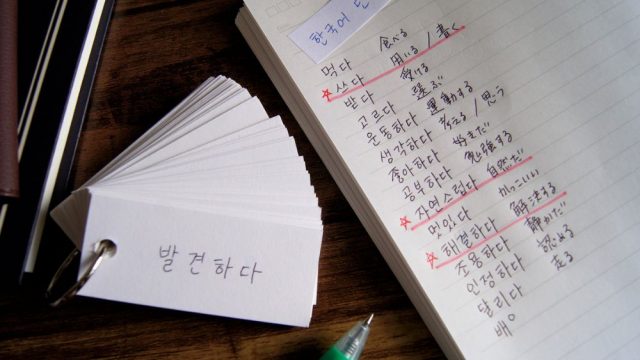 한국어 단
먹다 食べる
쓰다 用いる / 書く
받다 受ける
고르다 選ぶ
운동하다 運動する
생각하다 考える / 思う
좋아하다 好きだ
공부하다 勉強する
자연스럽다 自然だ
멋있다 かっこいい
해결하다 解決する
조용하다 静かだ
인정하다 認める
달리다 走る
발견하다